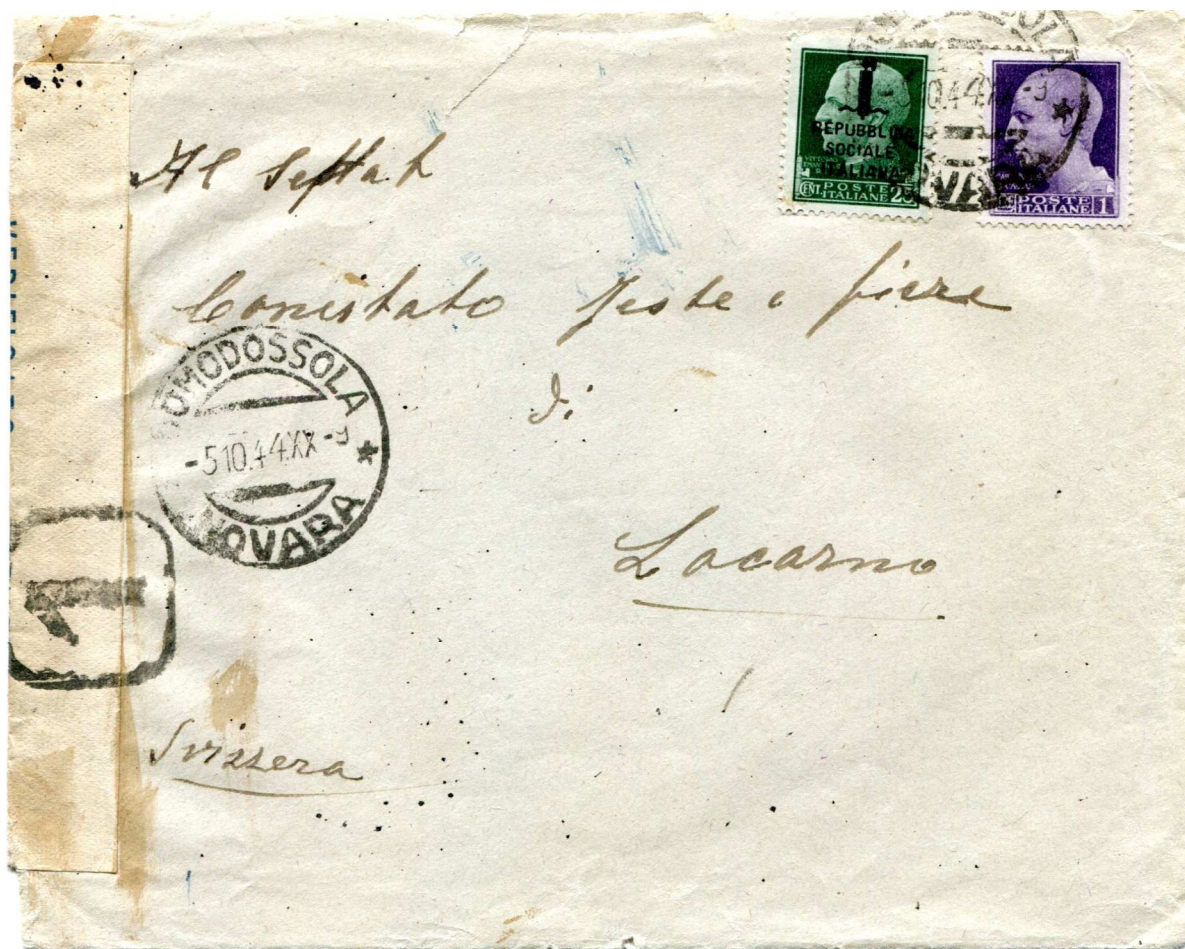 REPUBBLICA
SOCIALE
ITALIANA
CENT. POSTE
ITALIANE 25
POSTE
ITALIANE 1
NOVARA
Al
Comistato feste e fiere
di
DOMODOSSOLA
-5.10.44.XX-9
NOVARA
Locarno
Svizzera
1